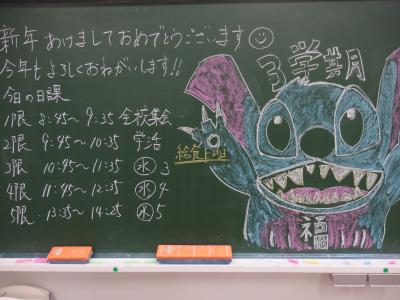 新年あけましておめでとうございます
今年もよろしくおねがいします!!
今日の日課
1限 8:45〜9:35 全校集会
2限 9:45〜10:35 学活
3限 10:45〜11:35 ㊌3
4限 11:45〜12:35 ㊌4
5限 13:35〜14:25 ㊌5
3学期
福